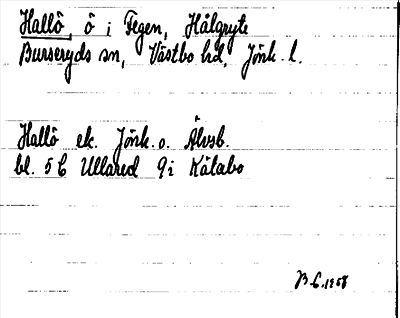 Hallö, ö i Fegen, Hålgryte
Burseryds sn, Västbo hd, Jönk. l.
Hallö ek. Jönk. o. Älvsb.
bl. 5 C Ullared 9i Kålabo
B. C. 1958